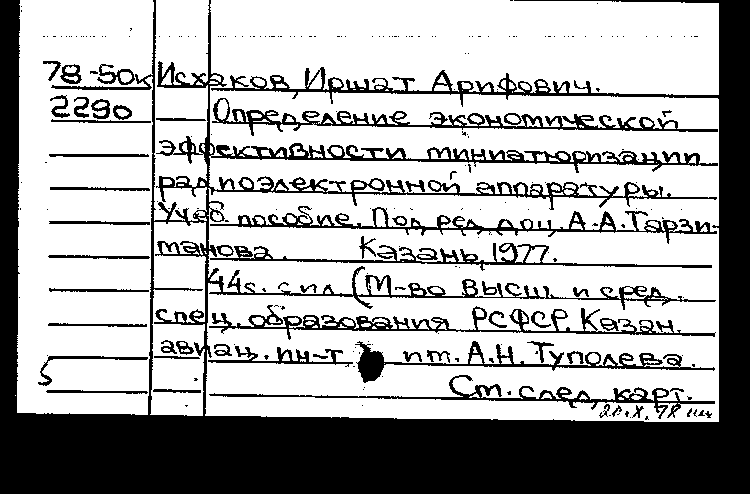 78-50к Исхаков, Иршат Арифович.
2290 Определение экономической
эффективности миниатюризации
радиоэлектронной аппаратуры.
Учеб. пособие. Под ред. доц. А.А. Тарзи-
манова. Казань, 1977.
44с. с ил. (М-во высш. и сред.
спец. образования РСФСР. Казан.
авиац. ин-т им. А.Н. Туполева.
5 Ст. след. карт.
20.X.78